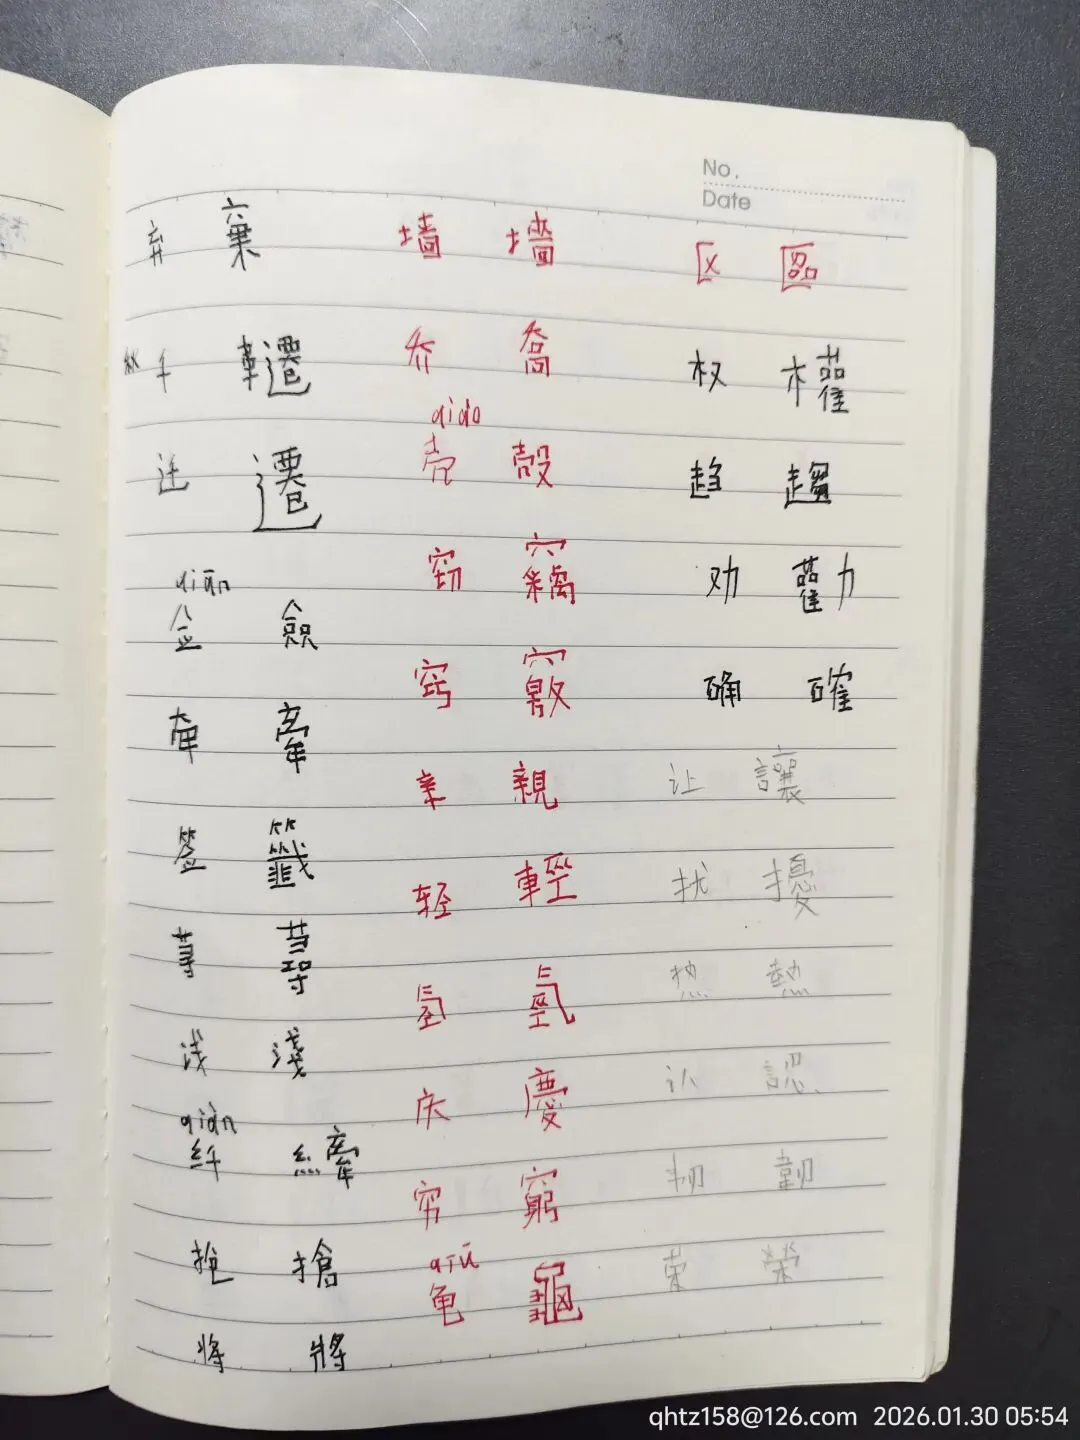 No.
Date
弃 棄
墙 墻
区 區
千 韆
乔 喬
权 權
qiào
壳 殼
迁 遷
趋 趨
窃 竊
qiān
佥 僉
劝 勸
窍 竅
确 確
牵 牽
亲 親
让 讓
签 籤
轻 輕
扰 擾
荨 蕁
氢 氫
热 熱
浅 淺
庆 慶
认 認
qiàn
纤 縴
韧 韌
穷 窮
荣 榮
qiū
龟 龜
抢 搶
将 將
qhtz158@126.com 2026.01.30 05:54